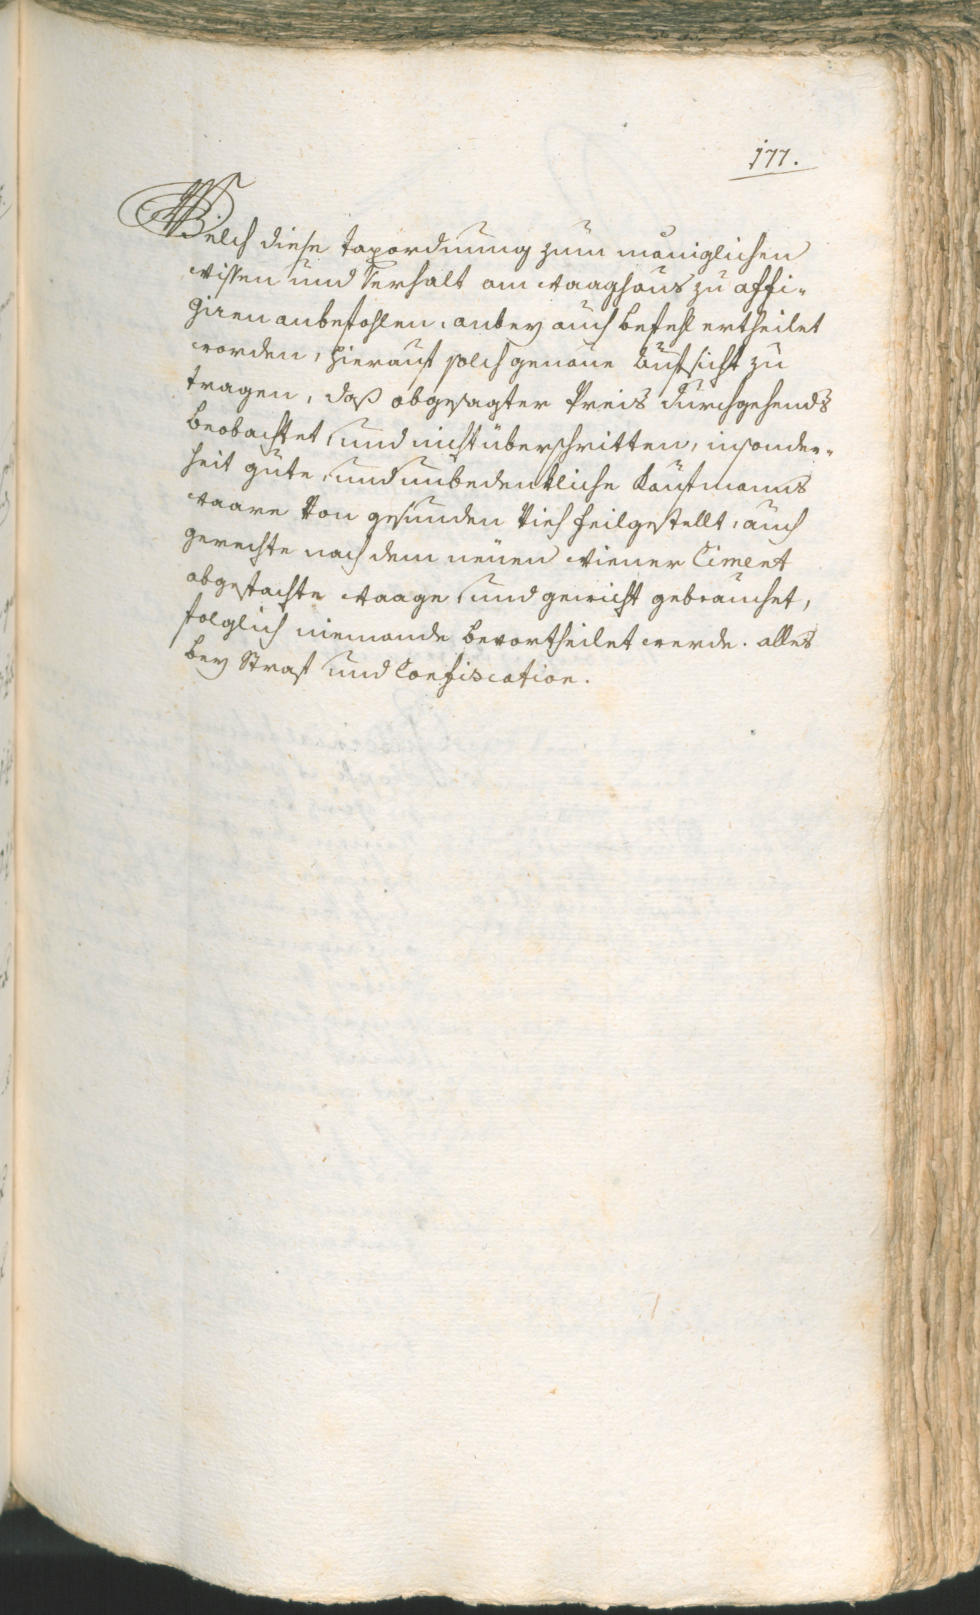 177.
Welch diese taxordnung zum mäniglichen
wissen und Verhalt am waaghaus zu affi-
giren anbefohlen, anbey auch befehl ertheilet
worden, hierauf solch genaue aufsicht zu
tragen, daß obgesagter Preis durchgehends
beobachtet, und nicht überschritten, insonder-
heit gute, und unbedenkliche Kaufmanns
waare Von gesunden Vieh feilgestellt, auch
gerechte nach dem neuen wiener Ciment
abgefachte waage, und gewicht gebrauchet,
folglich niemande bevortheilet werde. alles
bey Straf und Confiscation.